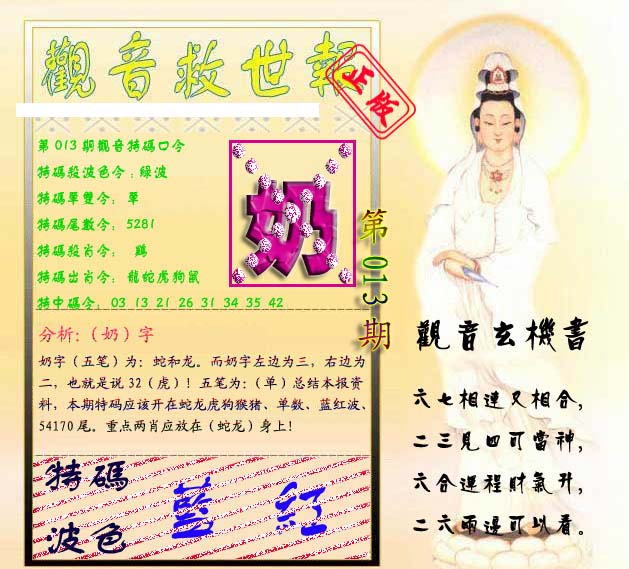 觀音救世報
正版
第013期觀音特碼口令
特碼殺波色令:綠波
特碼單雙令: 單
特碼尾數令: 5281
特碼殺肖令: 鷄
特碼出肖令: 龍蛇虎狗鼠
特中碼令: 03 13 21 26 31 34 35 42
奶
第013期
分析:（奶）字
奶字（五笔）为：蛇和龙。而奶字左边为三，右边为
二，也就是说32（虎）！五笔为：（单）总结本报资
料，本期特码应该开在蛇龙虎狗猴猪、单数、蓝红波、
54170尾。重点两肖应放在（蛇龙）身上！
特碼
波色
藍 紅
觀音玄機書
六七相連又相合,
二三見四可當神,
六合運程財氣升,
二六兩邊可以看。